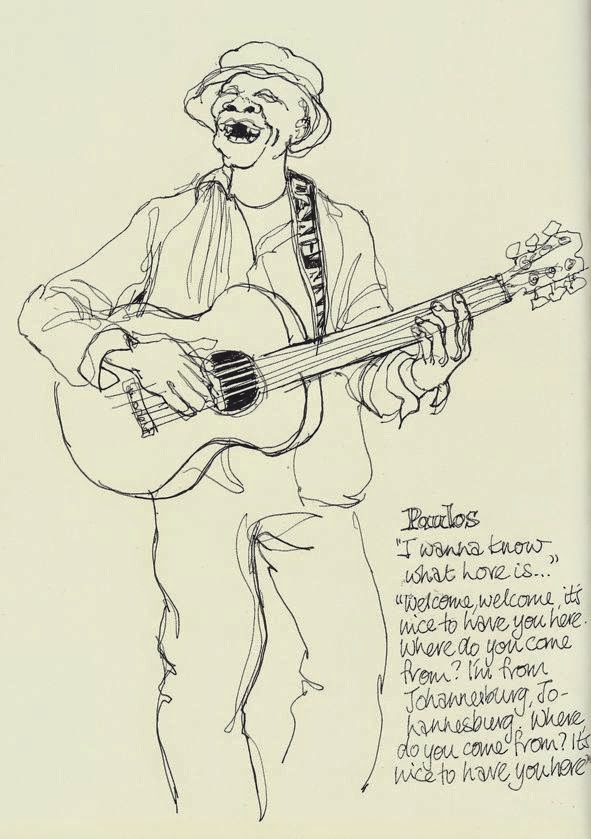 Paulos
"I wanna know
what love is..."
"Welcome, welcome, it's
nice to have you here.
Where do you come
from? I'm from
Johannesburg, Jo-
hannesburg. Where
do you come from? It's
nice to have you here"